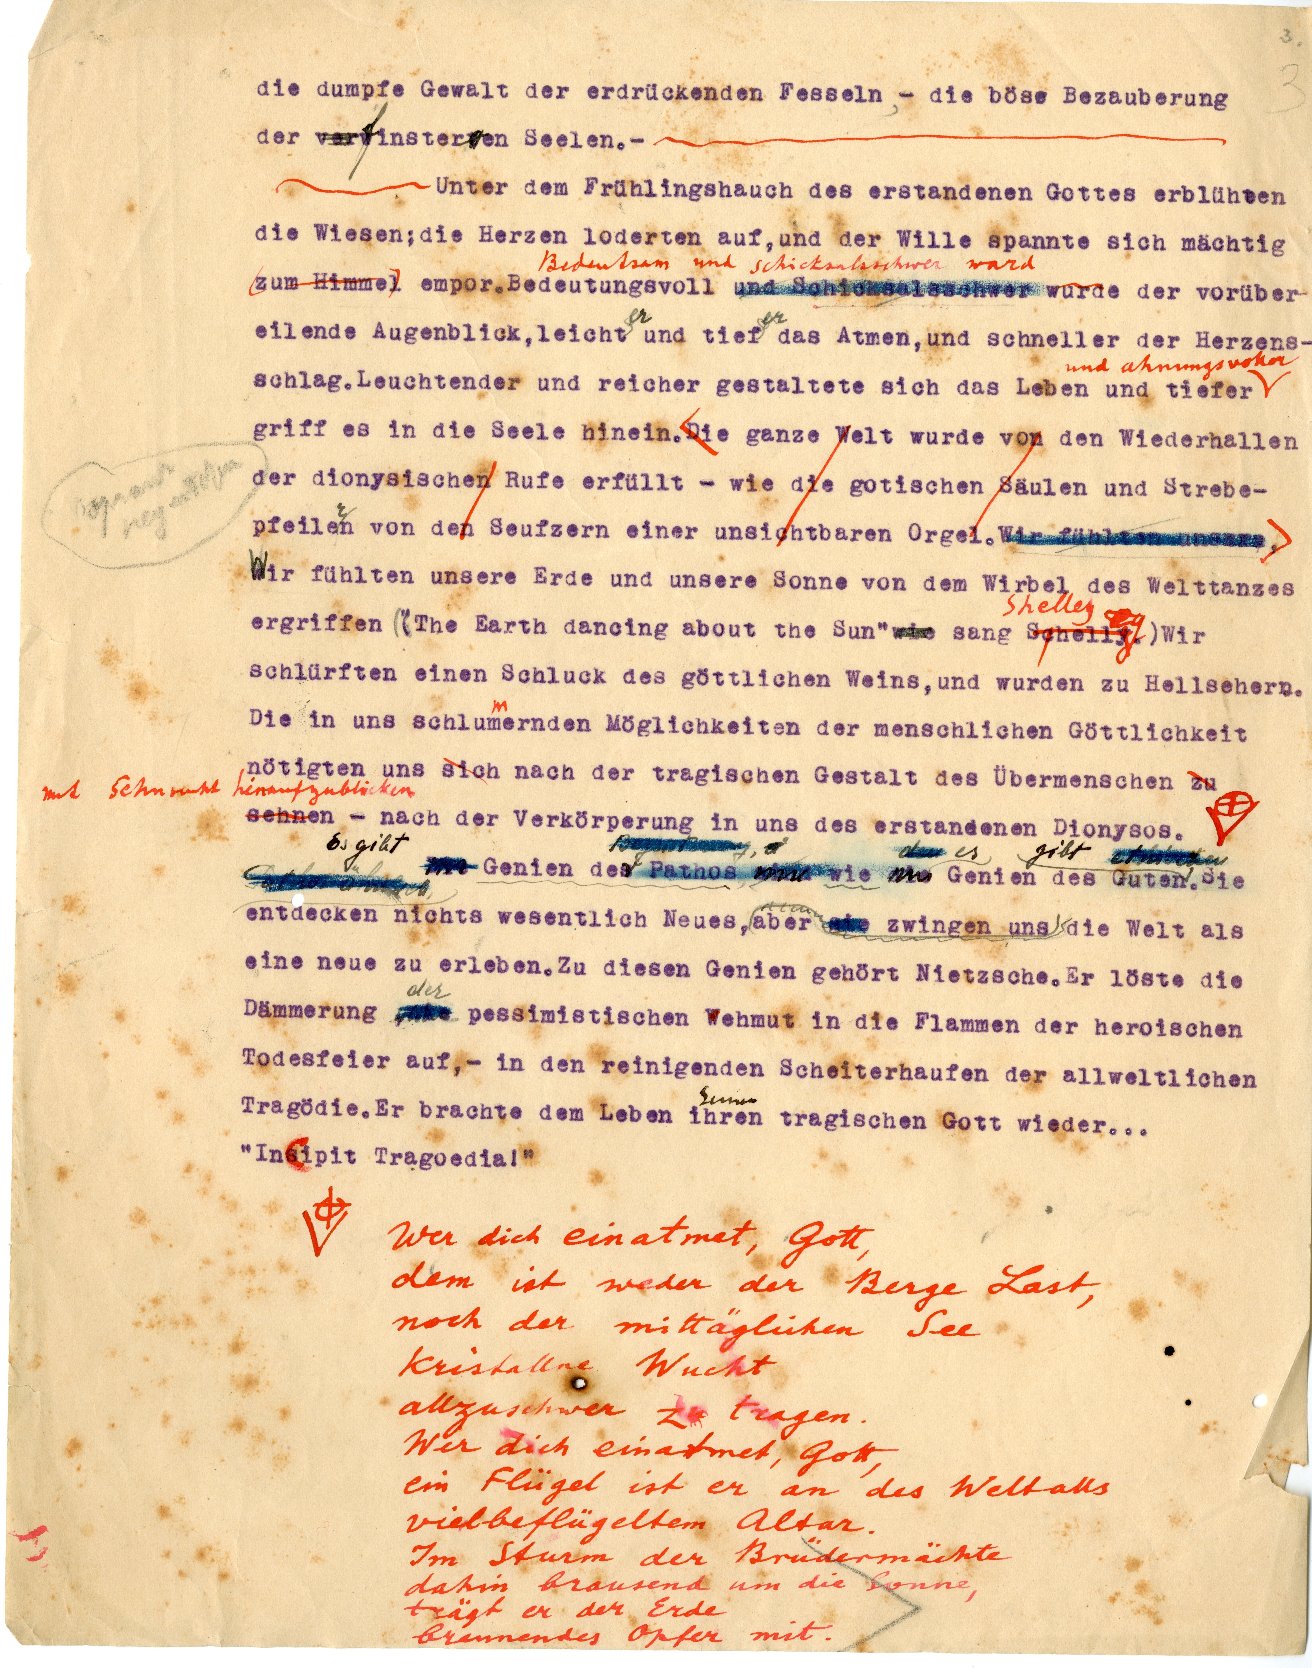 3.
3
die dumpfe Gewalt der erdrückenden Fesseln,- die böse Bezauberung
der verfinsterten Seelen.-
Unter dem Frühlingshauch des erstandenen Gottes erblühten
die Wiesen;die Herzen loderten auf,und der Wille spannte sich mächtig
Bedeutsam und schicksalsschwer ward
(zum Himmel) empor.Bedeutungsvoll und Schicksalsschwer wurde der vorüber-
er er
eilende Augenblick,leicht und tief das Atmen,und schneller der Herzens-
und ahnungsvoller
schlag.Leuchtender und reicher gestaltete sich das Leben und tiefer
griff es in die Seele hinein.Die ganze Welt wurde von den Wiederhallen
der dionysischen Rufe erfüllt - wie die gotischen Säulen und Strebe-
pfeilen von den Seufzern einer unsichtbaren Orgel.Wir fühlten unsere,
Wir fühlten unsere Erde und unsere Sonne von dem Wirbel des Welttanzes
Shelley
ergriffen ("The Earth dancing about the Sun"wie sang Schelly.)Wir
schlürften einen Schluck des göttlichen Weins,und wurden zu Hellsehern.
m
Die in uns schlumernden Möglichkeiten der menschlichen Göttlichkeit
nötigten uns sich nach der tragischen Gestalt des Übermenschen zu
mit Sehnsucht hinaufzublicken
sehnen - nach der Verkörperung in uns des erstandenen Dionysos.
Es gibt es gibt
Genien des Pathos, wie Genien des Guten.Sie
entdecken nichts wesentlich Neues,aber sie zwingen uns die Welt als
eine neue zu erleben.Zu diesen Genien gehört Nietzsche.Er löste die
der
Dämmerung pessimistischen Wehmut in die Flammen der heroischen
Todesfeier auf,- in den reinigenden Scheiterhaufen der allweltlichen
seinen
Tragödie.Er brachte dem Leben ihren tragischen Gott wieder...
"Incipit Tragoedia!"
Wer dich einatmet, Gott,
dem ist weder der Berge Last,
noch der mittäglichen See
kristallne Wucht
allzuschwer zu tragen.
Wer dich einatmet, Gott,
ein Flügel ist er an des Weltalls
vielbeflügeltem Altar.
Im Sturm der Brüdermächte
dahin brausend um die Sonne,
trägt er der Erde
brennendes Opfer mit.